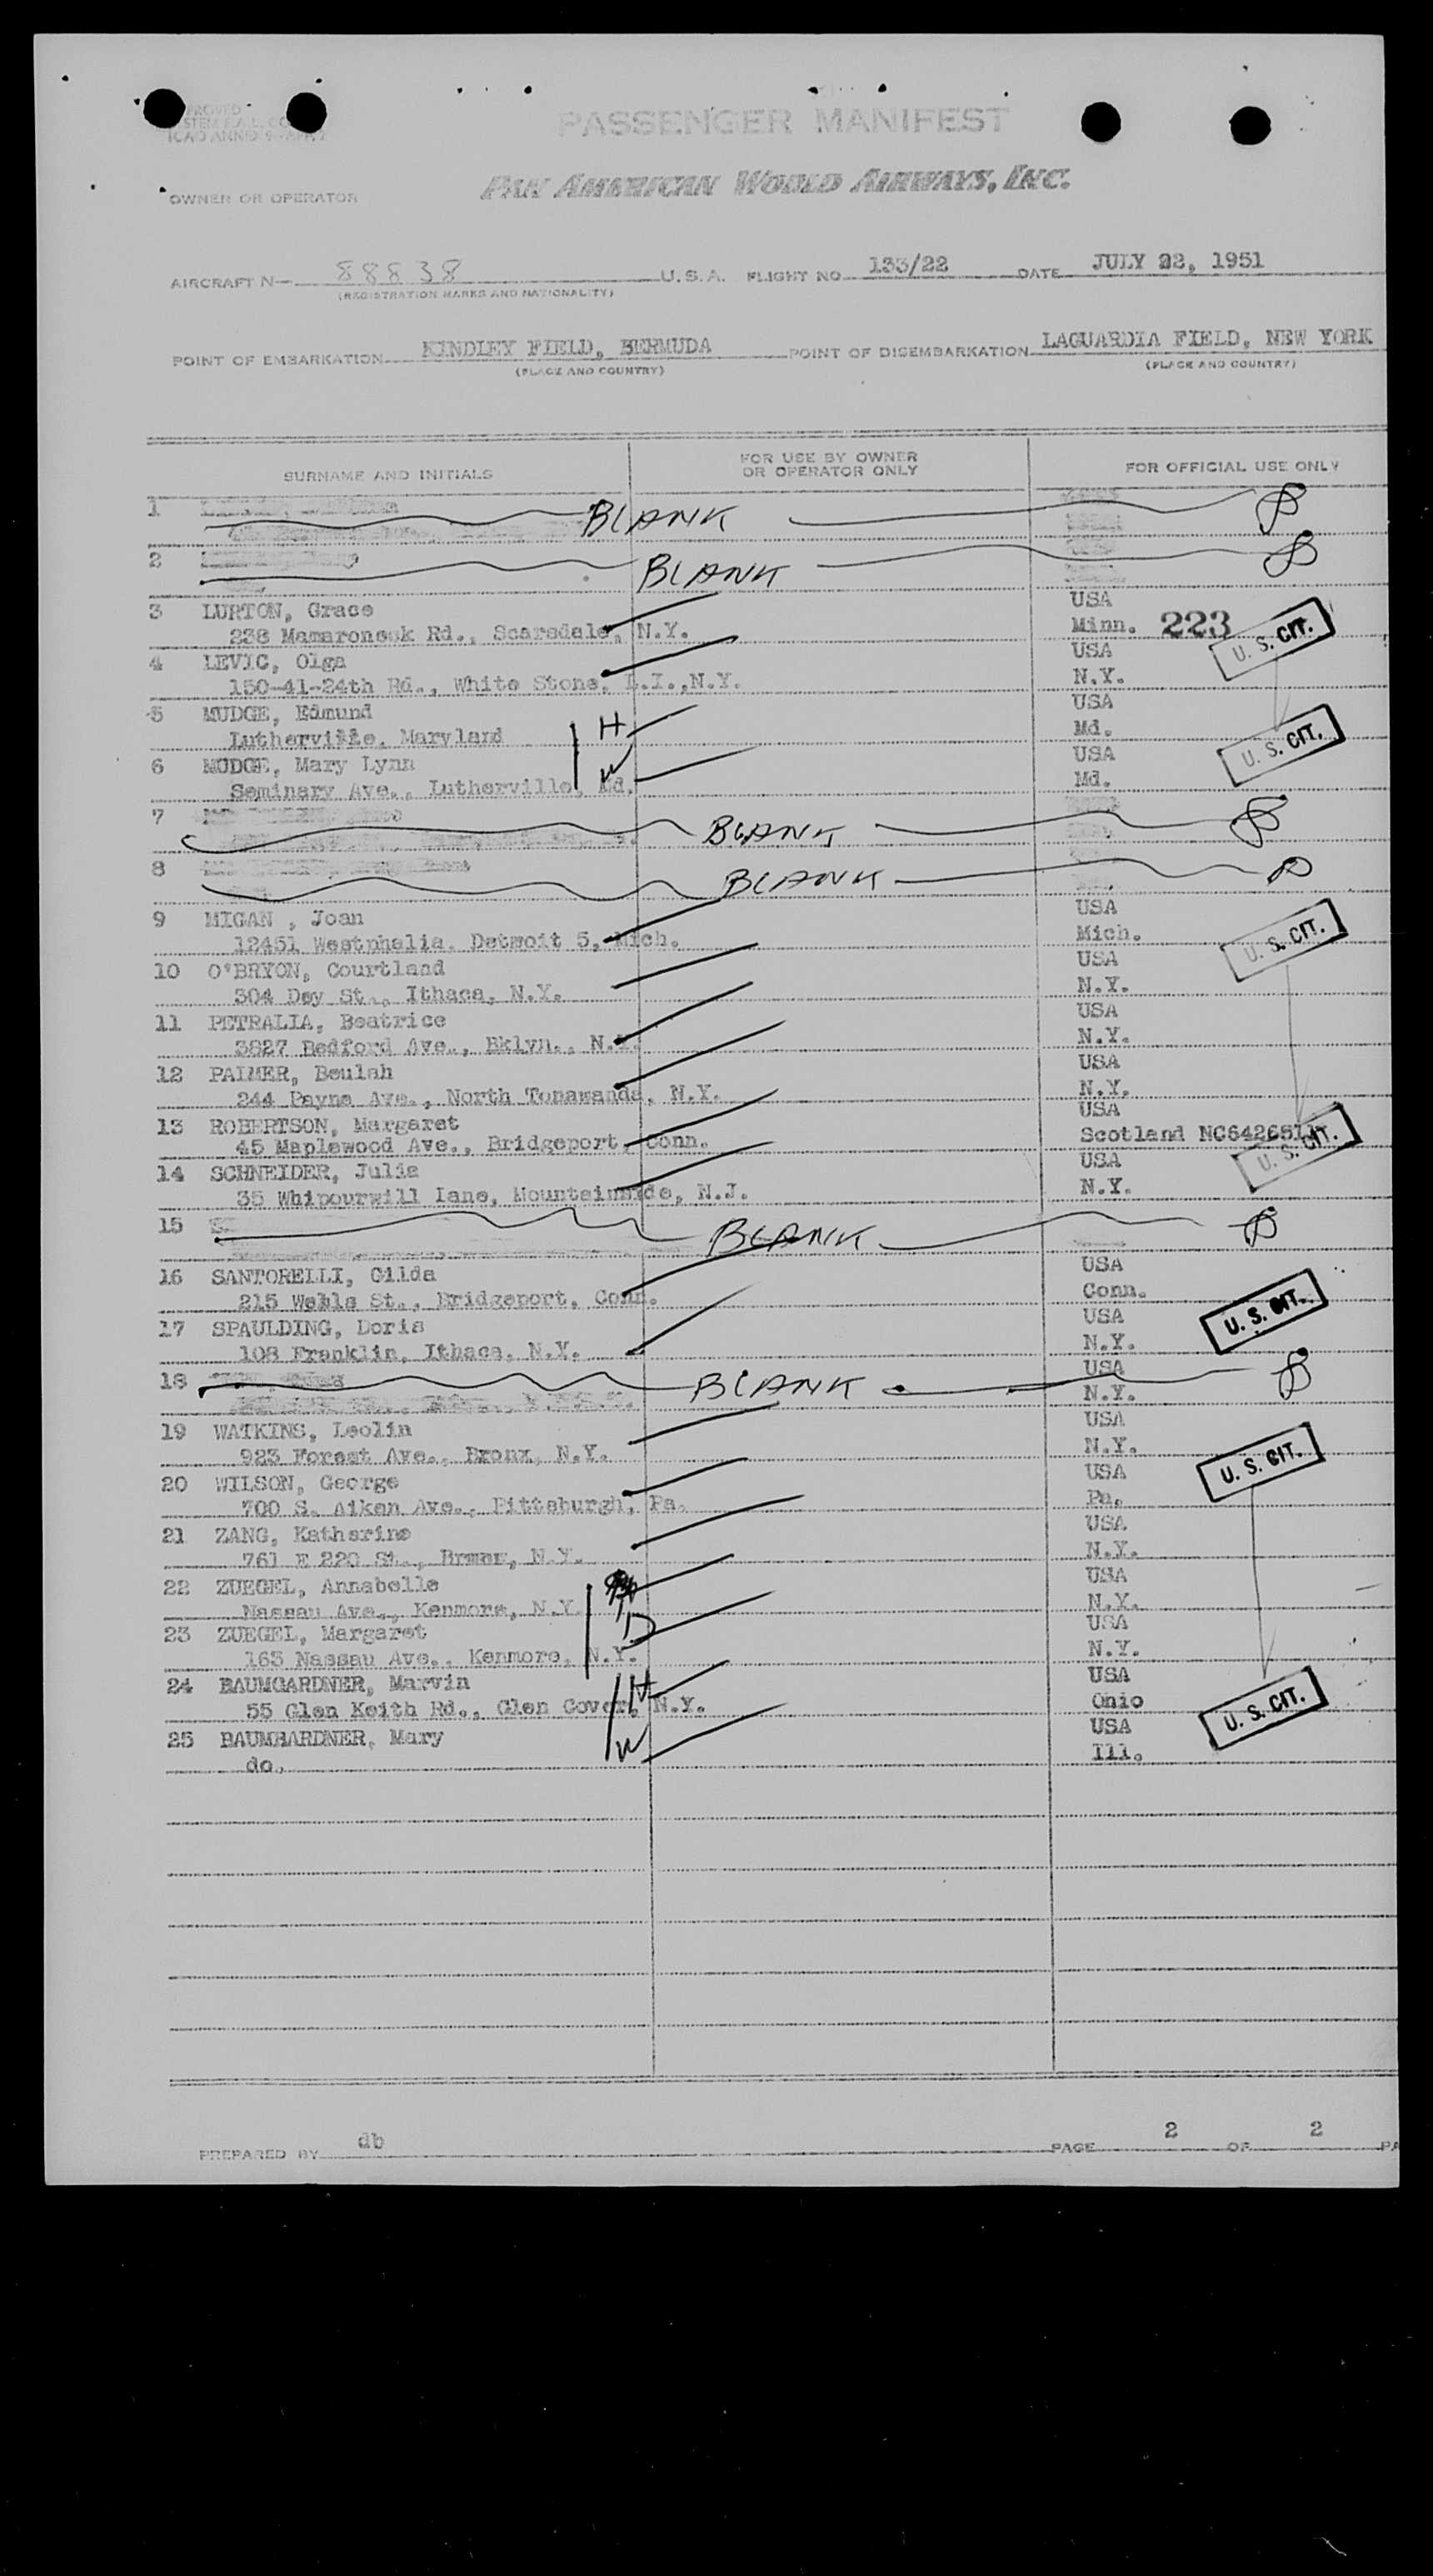 PASSENGER MANIFEST
PAN AMERICAN WORLD AIRWAYS, INC.
OWNER OR OPERATOR
AIRCRAFT N- 88838 U.S.A. FLIGHT NO. 133/22 DATE JULY 22, 1951
(REGISTRATION MARKS AND NATIONALITY)
POINT OF EMBARKATION KINDLEY FIELD, BERMUDA POINT OF DISEMBARKATION LAGUARDIA FIELD, NEW YORK
(PLACE AND COUNTRY) (PLACE AND COUNTRY)
SURNAME AND INITIALS FOR USE BY OWNER OR OPERATOR ONLY FOR OFFICIAL USE ONLY
1 BLANK
2 BLANK
3 LURTON, Grace USA
238 Mamaroneck Rd., Scarsdale, N.Y. Minn. 223 U. S. CIT.
4 LEVIC, Olga USA
150-41-24th Rd., White Stone, L.I.,N.Y. N.Y.
5 MUDGE, Edmund H USA
Lutherville, Maryland Md. U. S. CIT.
6 MUDGE, Mary Lynn W USA
Seminary Ave., Lutherville, Md. Md.
7 BLANK
8 BLANK
9 MIGAN , Joan USA
12451 Westphalia, Detroit 5, Mich. Mich. U. S. CIT.
10 O'BRYON, Courtland USA
304 Dey St., Ithaca, N.Y. N.Y.
11 PETRALIA, Beatrice USA
3827 Bedford Ave., Bklyn., N.Y. N.Y.
12 PALMER, Beulah USA
244 Payne Ave., North Tonawanda, N.Y. N.Y.
13 ROBERTSON, Margaret USA
45 Maplewood Ave., Bridgeport, Conn. Scotland U. S. CIT.
14 SCHNEIDER, Julia USA
35 Whipourwill Lane, Mountainside, N.J. N.Y.
15 BLANK
16 SANTORELLI, Gilda USA
215 St., Bridgeport, Conn. Conn.
17 SPAULDING, Doris USA U. S. CIT.
108 Franklin, Ithaca, N.Y. N.Y.
18 BLANK USA
N.Y.
19 WATKINS, Leolin USA
923 Forest Ave., Bronx, N.Y. N.Y.
20 WILSON, George USA U. S. CIT.
700 S. Aiken Ave., Pittsburgh, Pa. Pa.
21 ZANG, Katherine USA
761 E 220 St., N.Y. N.Y.
22 ZUEGEL, Annabelle USA
Nassau Ave., Kenmore, N.Y. N.Y.
23 ZUEGEL, Margaret D USA
163 Nassau Ave., Kenmore, N.Y. N.Y.
24 BAUMGARDNER, Marvin H USA
55 Glen Keith Rd., Glen N.Y. Ohio U. S. CIT.
25 BAUMBARDNER, Mary W USA
do. Ill.
PREPARED BY db PAGE 2 OF 2